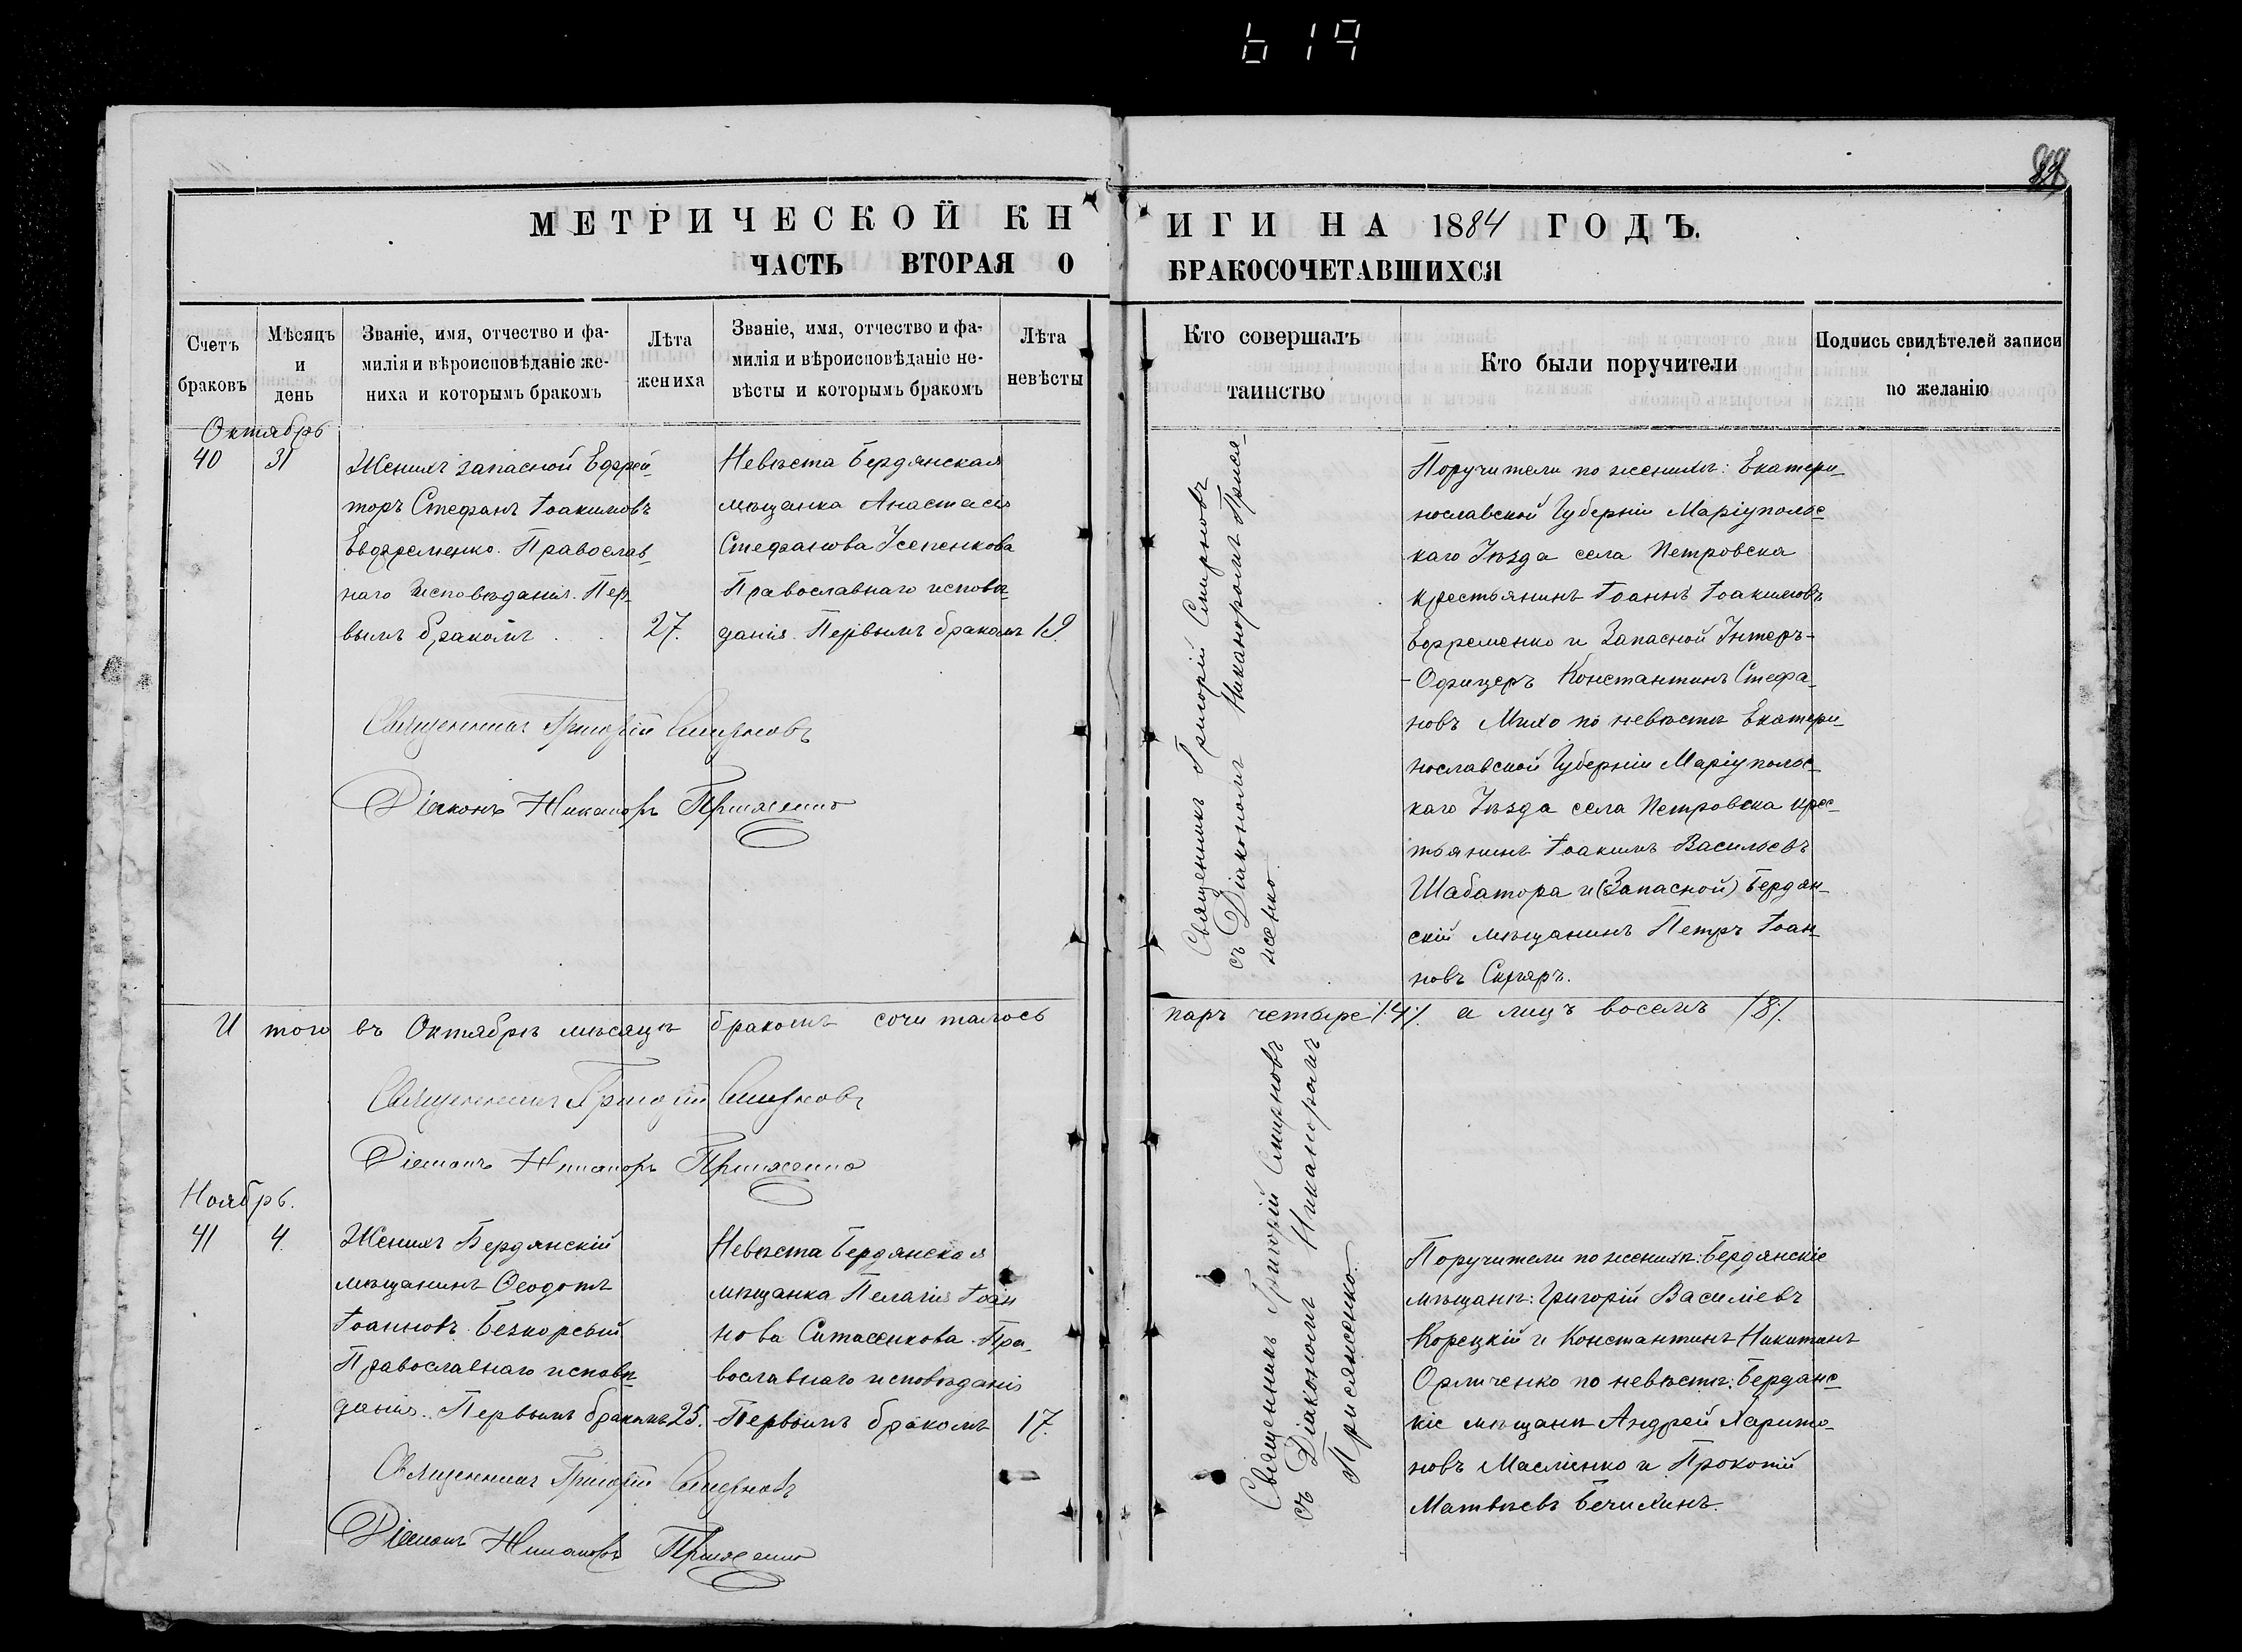 619
89
МЕТРИЧЕСКОЙ КНИГИ НА 1884 ГОДЪ.
ЧАСТЬ ВТОРАЯ О БРАКОСОЧЕТАВШИХСЯ
Счетъ браковъ
Мѣсяцъ и день
Званіе, имя, отчество и фа-
милія и вѣроисповѣданіе же-
ниха и которымъ бракомъ
Лѣта жениха
Званіе, имя, отчество и фа-
милія и вѣроисповѣданіе не-
вѣсты и которымъ бракомъ
Лѣта невѣсты
Кто совершалъ
таинство
Кто были поручители
Подпись свидѣтелей записи
по желанію
Октябрь
40 31
Женихъ запасной Ефрей-
торъ Стефанъ Іоакимовъ
Евфременко. Православ-
наго Исповѣданія. Пер-
вымъ бракомъ . . 27.
Невѣста Бердянская
мѣщанка Анастасія
Стефанова Усепенкова
Православнаго исповѣ-
данія. Первымъ бракомъ 19.
Священникъ Григорій Смирновъ
Діаконъ Никаноръ Присяженко
Священникъ Григорій Смирновъ
съ Діакономъ Никаноромъ Прися-
женко.
Поручители по женихѣ: Екатери-
нославской Губерніи Маріупольс-
каго Уѣзда села Петровска
крестьянинъ Іоаннъ Іоакимовъ
Ефременко и Запасной Унтеръ-
-Офицеръ Константинъ Стефа-
новъ Михо по невѣстѣ Екатери-
нославской Губерніи Маріупольс-
каго Уѣзда села Петровска крес-
тьянинъ Іоакимъ Васильевъ
Шабатора и (Запасной) Бердян-
скій мѣщанинъ Петръ Іоан-
новъ
И того въ Октябрѣ мѣсяцѣ бракомъ сочиталось паръ четыре /4/. а лицъ восемь /8/.
Священникъ Григорій Смирновъ
Діаконъ Никаноръ Присяженко
Ноябрь.
41 4.
Женихъ Бердянскій
мѣщанинъ Ѳеодотъ
Іоанновъ Безкорсый
Православнаго исповѣ-
данія. Первымъ бракомъ 25.
Невѣста Бердянская
мѣщанка Пелагія Іоан
нова Ситасенкова. Пра-
вославнаго исповѣданія
Первымъ бракомъ 17.
Священникъ Григорій Смирновъ
Діаконъ Никаноръ Присяженко
Священникъ Григорій Смирновъ
съ Діакономъ Никаноромъ
Присяженко.
Поручители по женихѣ: Бердянскіе
мѣщане: Григорій Василіевъ
Корецкій и Константинъ Никитинъ
Орличенко по невѣстѣ: Бердянс-
кіе мѣщане Андрей Харито-
новъ Маслѣнко и Прокопій
Матвѣевъ Бечихинъ.